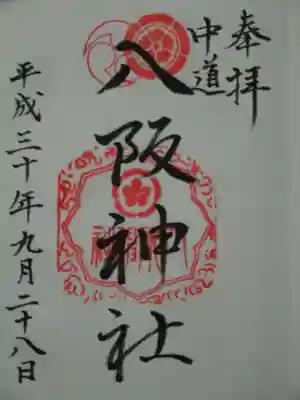 奉拝
中道
八阪神社
平成三十年九月二十八日